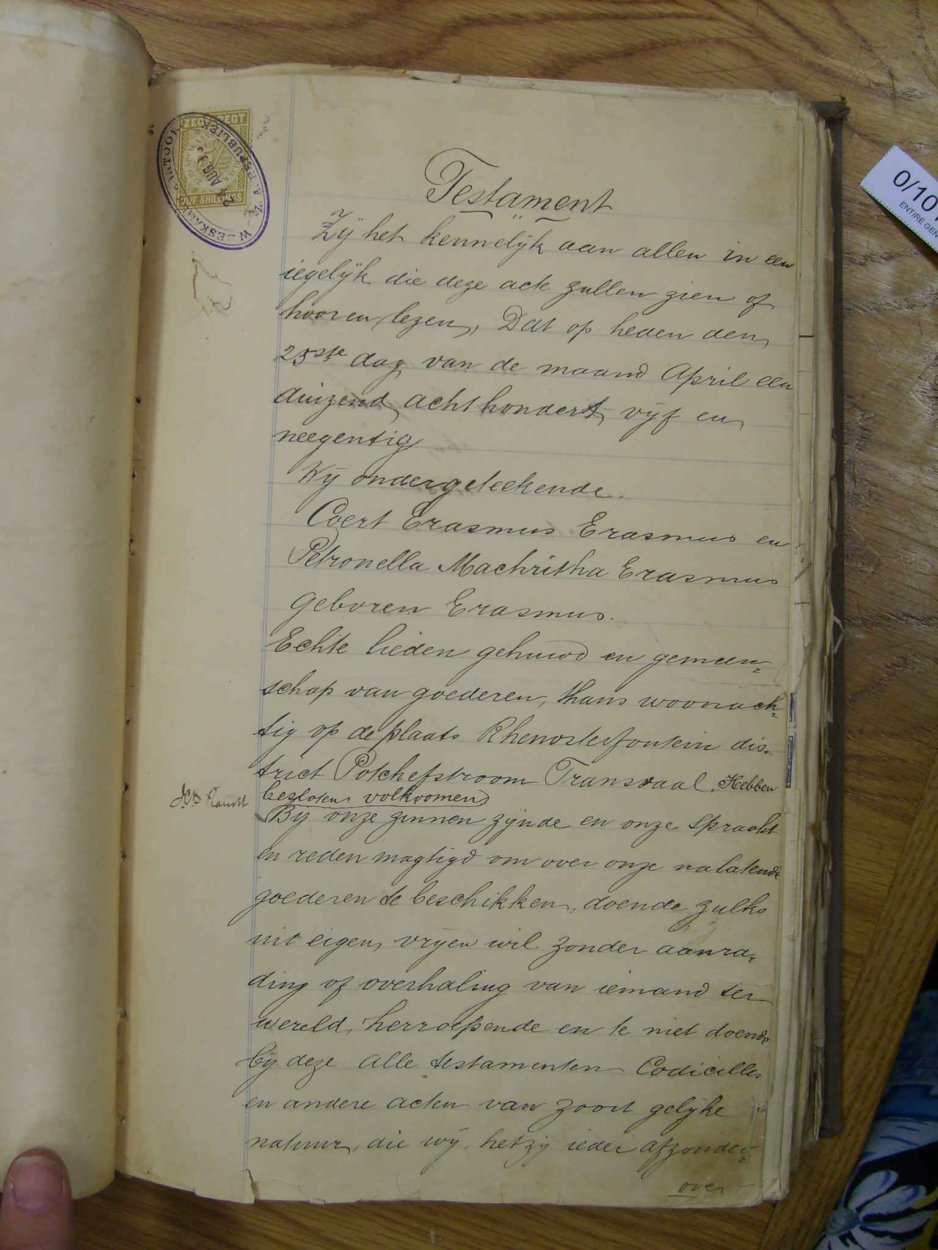 ZEGELREGT
VIJF SHILLINGS
24 AUG 95
Testament
Zij het kennelijk aan allen in een
iegelijk die deze ack zullen zien of
hooren lezen, Dat op heden den
25ste dag van de maand April een
duizend achthondert vijf en
neegentig
Wij ondergeteekende
Coert Erasmus Erasmus en
Petronella Machritha Erasmus
geboren Erasmus.
Echte lieden gehuwd in gemeen-
schap van goederen, thans woonach-
tig op de plaats Rhenosterfontein dis-
trict Potchefstroom Transvaal. Hebben
besloten volkoomend
Bij onze zinnen zijnde en onze spraake
en reden magtigd om over onze nalatende
goederen te beschikken, doende zulks
uit eigen vrijen wil zonder aanra-
ding of overhaling van iemand ter
wereld, herroepende en te niet doende
bij deze alle testamenten Codicillen
en andere acten van zoort gelijke
natuur, die wij, hetzij ieder afzonder-
over
0/10
ENTIRE GEN